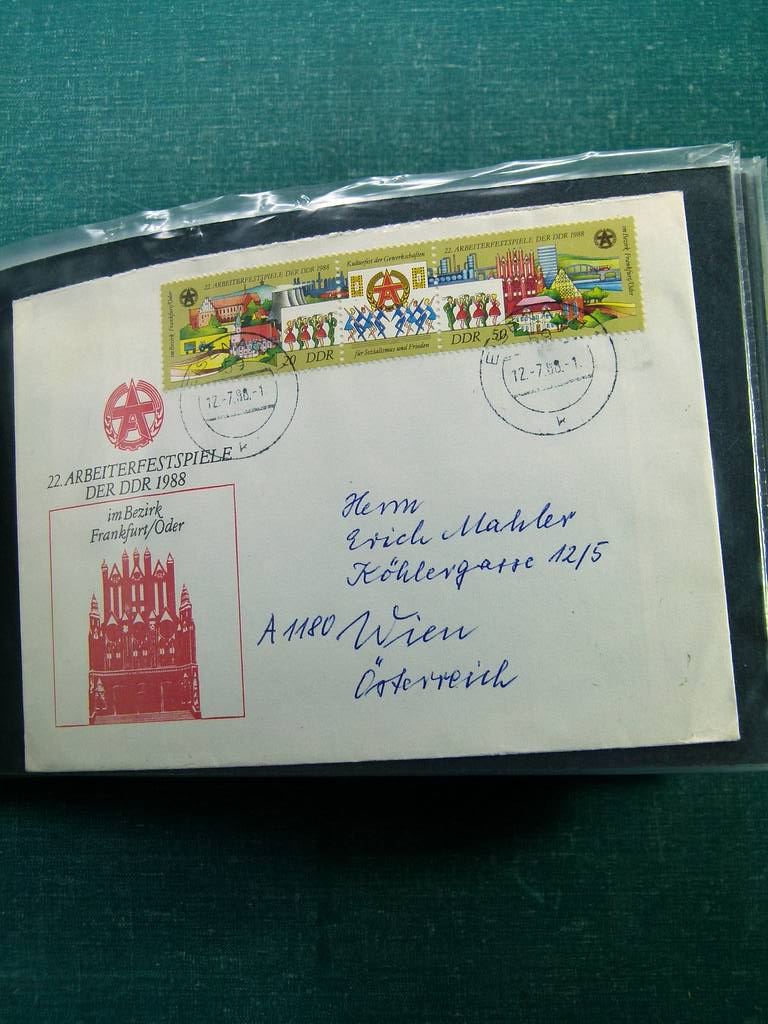 im Bezirk Frankfurt/Oder
22. ARBEITERFESTSPIELE DER DDR 1988
20 DDR
Kulturfest der Gewerkschaften
für Sozialismus und Frieden
22. ARBEITERFESTSPIELE DER DDR 1988
DDR 50
im Bezirk Frankfurt/Oder
12.-7.88.-1.
k
12.-7.88.-1.
k
22. ARBEITERFESTSPIELE
DER DDR 1988
im Bezirk
Frankfurt/Oder
Herrn
Erich Mahler
Köhlergasse 12/5
A 1180 Wien
Österreich